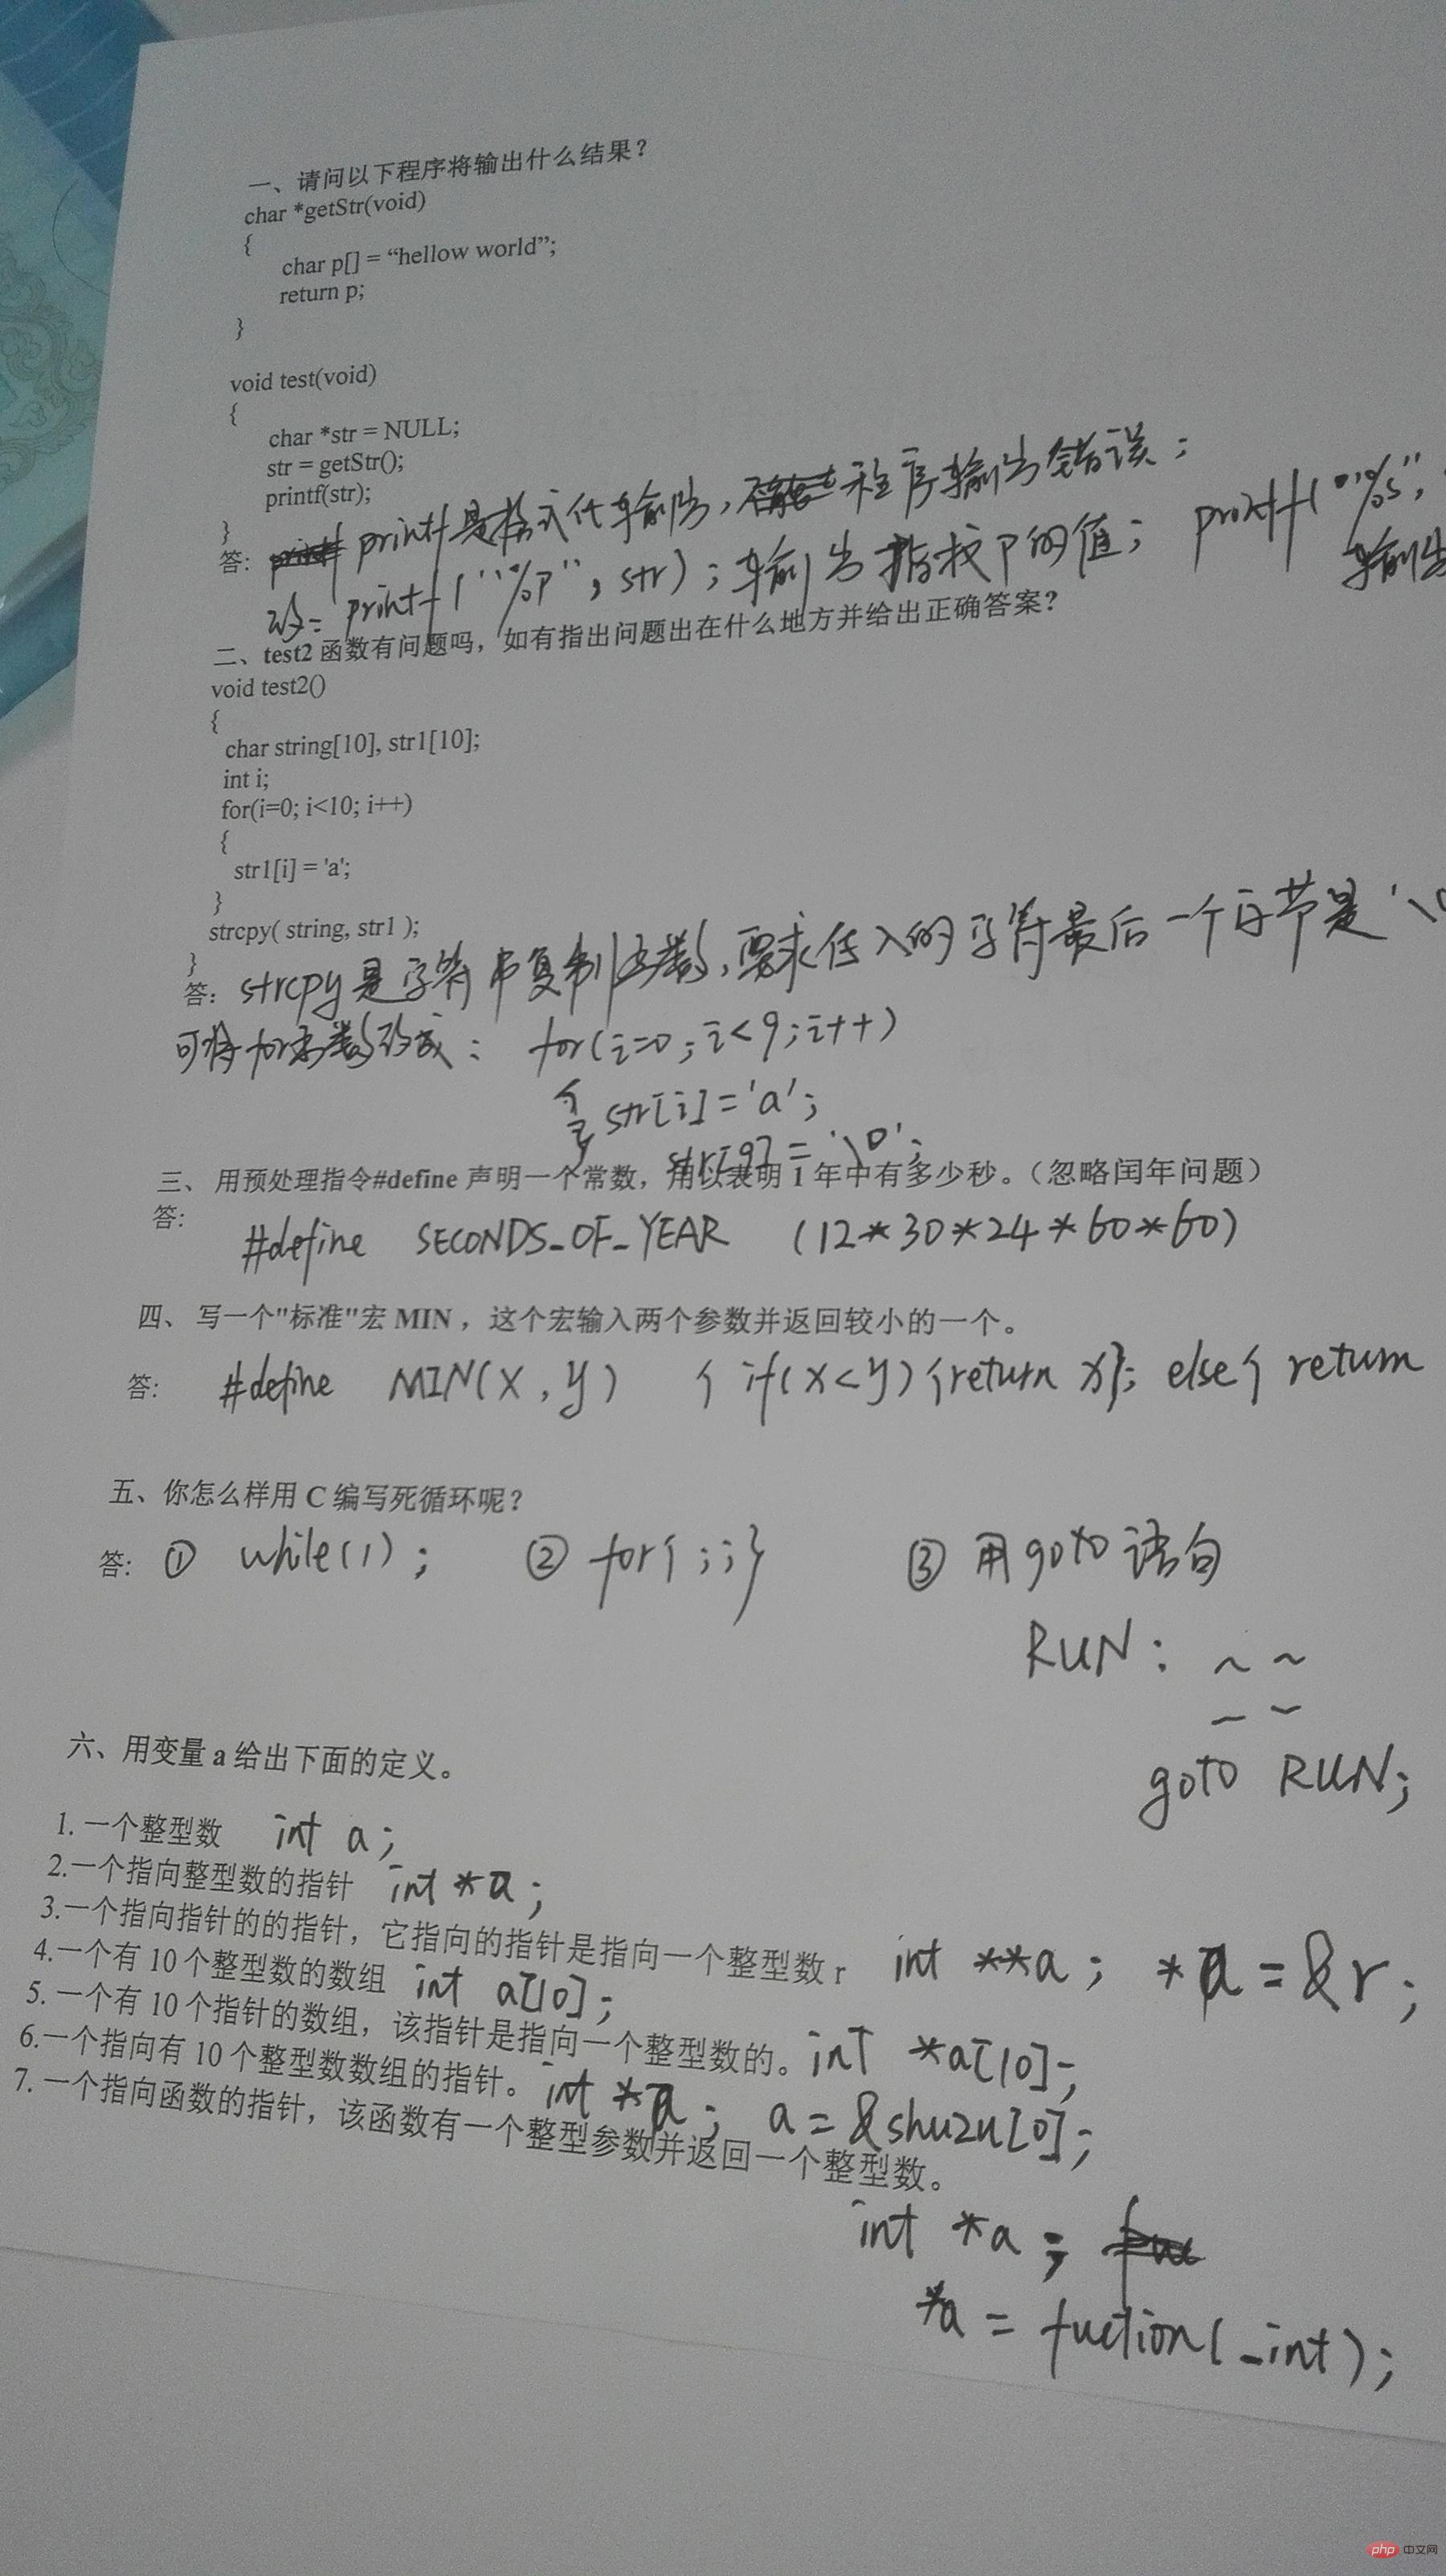 一、请问以下程序将输出什么结果？
char *getStr(void)
{
char p[] = “hellow world”;
return p;
}
void test(void)
{
char *str = NULL;
str = getStr();
printf(str);
}
答: printf是格式化输出, 程序输出错误；
改: printf("%p", str)；输出指针P的值； printf("%s",
输出
二、test2 函数有问题吗，如有指出问题出在什么地方并给出正确答案？
void test2()
{
char string[10], str1[10];
int i;
for(i=0; i<10; i++)
{
str1[i] = 'a';
}
strcpy( string, str1 );
}
答: strcpy是字符串复制函数, 要求传入的字符最后一个字节是'\0
可将for函数改成： for(i=0；i<9；i++)
{ str[i]='a';
str[9]='\0';
三、 用预处理指令#define 声明一个常数，用以表明 1 年中有多少秒。（忽略闰年问题）
答:
#define SECONDS_OF_YEAR (12*30*24*60*60)
四、 写一个"标准"宏 MIN ，这个宏输入两个参数并返回较小的一个。
答: #define MIN(X,y) { if(x<y){return x}; else{ return
五、你怎么样用 C 编写死循环呢？
答: ① while(1)； ② for{;;} ③ 用goto语句
RUN: ~ ~
goto RUN;
六、用变量 a 给出下面的定义。
1. 一个整型数 int a;
2.一个指向整型数的指针 int *a;
3.一个指向指针的的指针，它指向的指针是指向一个整型数 r int **a; *a=&r;
4.一个有 10 个整型数的数组 int a[10];
5. 一个有 10 个指针的数组，该指针是指向一个整型数的。int *a[10];
6.一个指向有 10 个整型数数组的指针。int *a; a=&shuzu[0];
7. 一个指向函数的指针，该函数有一个整型参数并返回一个整型数。
int *a;
*a = fuction(_int);
php 中文网